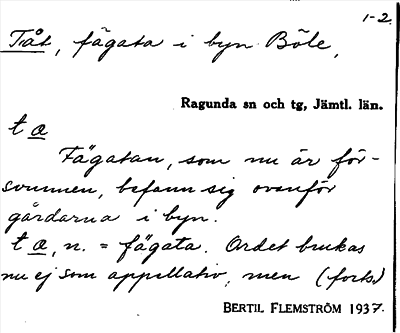 1-2.
Tået, fägata i byn Böle,
Ragunda sn och tg, Jämtl. län.
t æ
Fägatan, som nu är för-
svunnen, befann sig ovanför
gårdarna i byn.
t æ, n. = fägata. Ordet brukas
nu ej som appellativ, men (forts.)
BERTIL FLEMSTRÖM 1937.